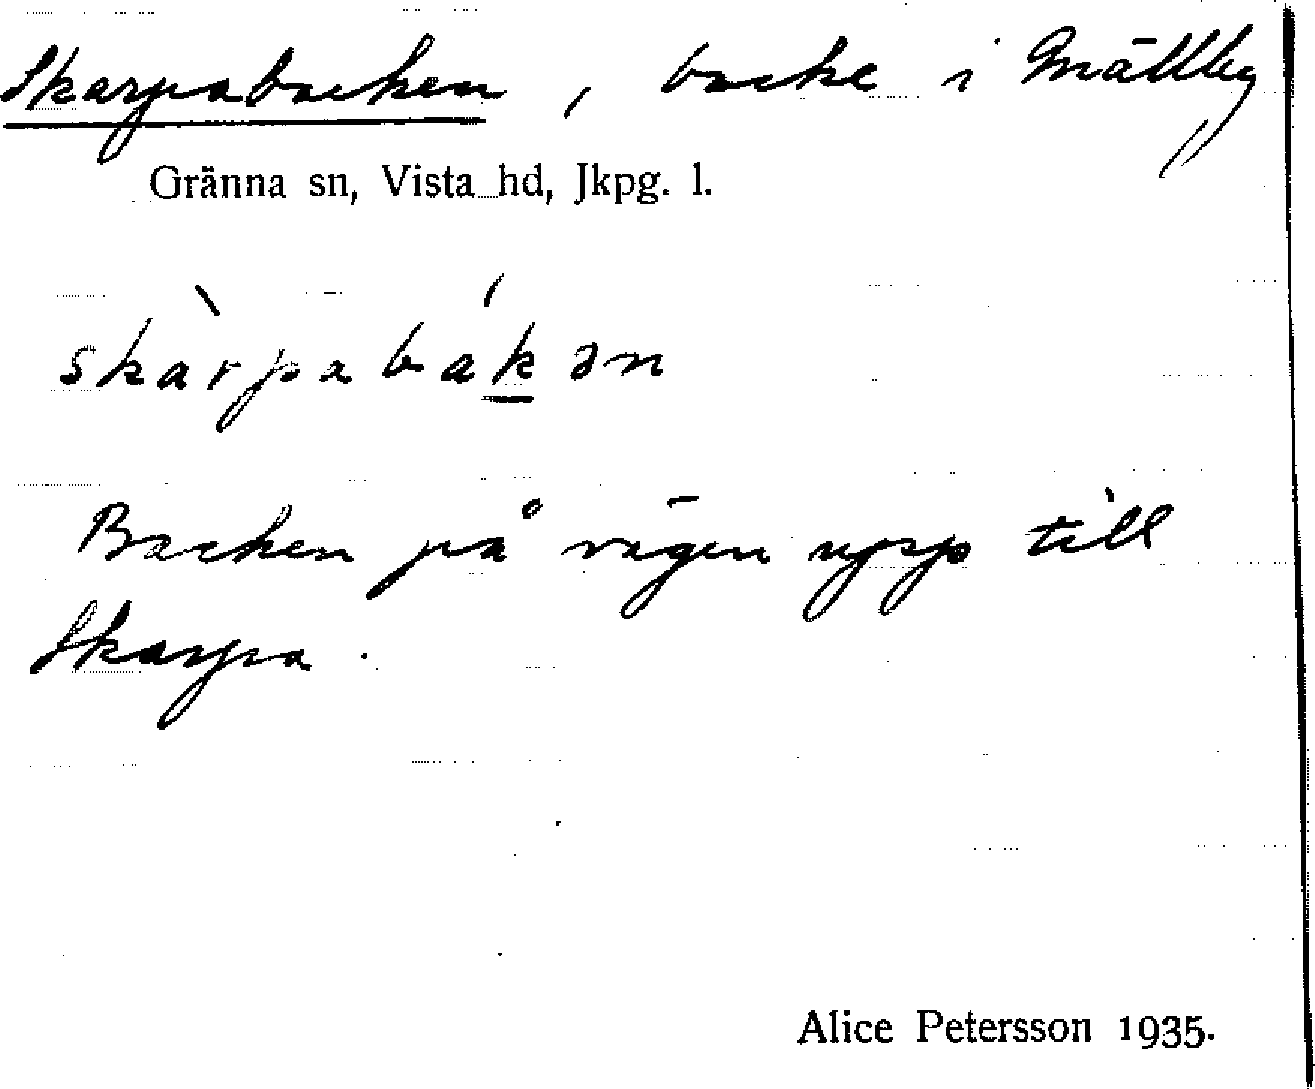 Skarpabacken, backe i Mällby
Gränna sn, Vista hd, Jkpg. l.
skàrpabákən
Backen på vägen upp till
Skarpa.
Alice Petersson 1935.